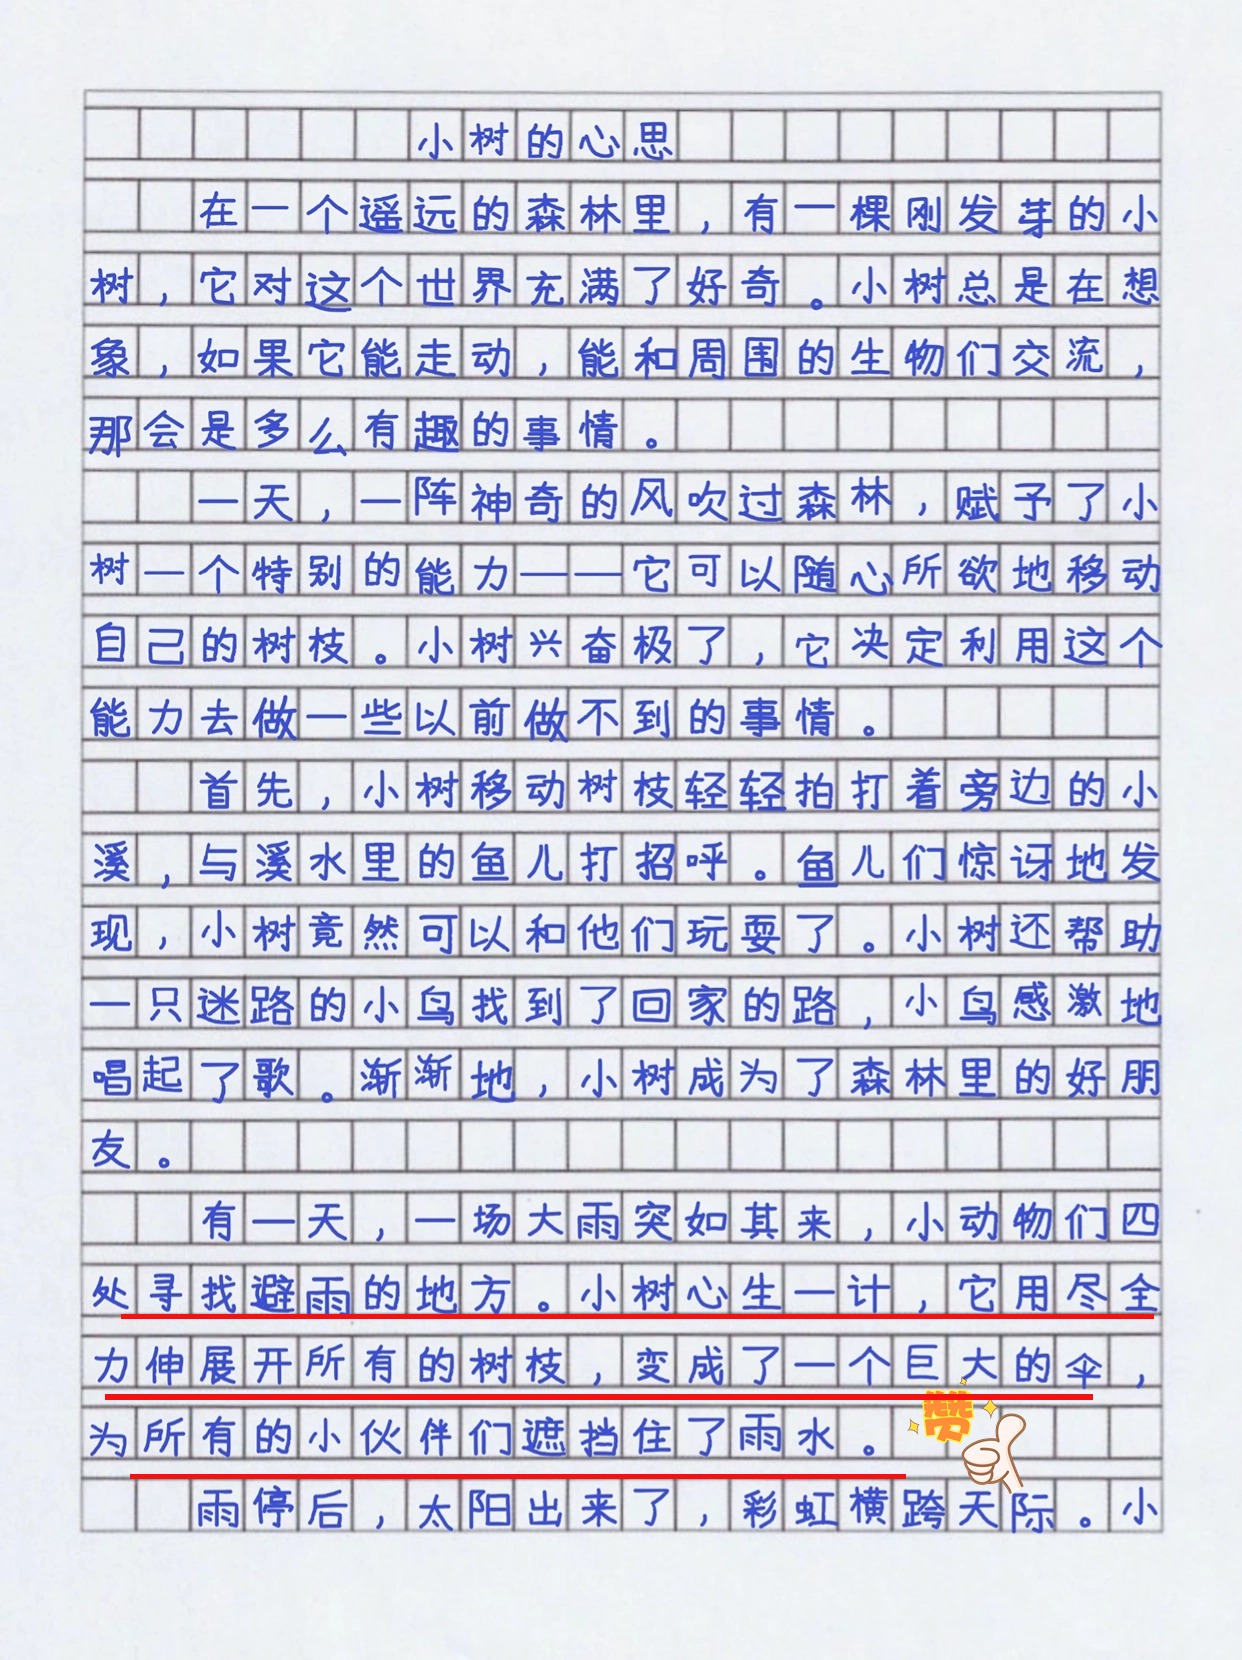 小树的心思
在一个遥远的森林里，有一棵刚发芽的小
树，它对这个世界充满了好奇。小树总是在想
象，如果它能走动，能和周围的生物们交流，
那会是多么有趣的事情。
一天，一阵神奇的风吹过森林，赋予了小
树一个特别的能力——它可以随心所欲地移动
自己的树枝。小树兴奋极了，它决定利用这个
能力去做一些以前做不到的事情。
首先，小树移动树枝轻轻拍打着旁边的小
溪，与溪水里的鱼儿打招呼。鱼儿们惊讶地发
现，小树竟然可以和他们玩耍了。小树还帮助
一只迷路的小鸟找到了回家的路，小鸟感激地
唱起了歌。渐渐地，小树成为了森林里的好朋
友。
有一天，一场大雨突如其来，小动物们四
处寻找避雨的地方。小树心生一计，它用尽全
力伸展开所有的树枝，变成了一个巨大的伞，
为所有的小伙伴们遮挡住了雨水。
赞
雨停后，太阳出来了，彩虹横跨天际。小